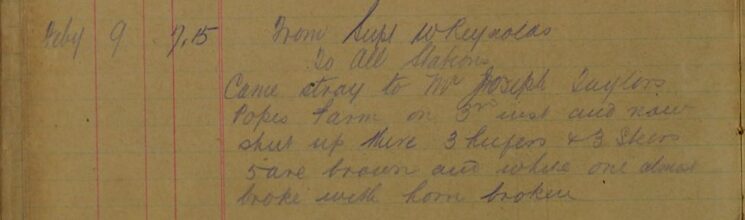 Feby 9 7.15 From Supt W Reynolds
To All Stations
Came stray to Mr Joseph Taylors
Popes Farm on 3rd inst and now
shut up there 3 heifers & 3 Steers
5 are brown and white one almost
broke with horn broken